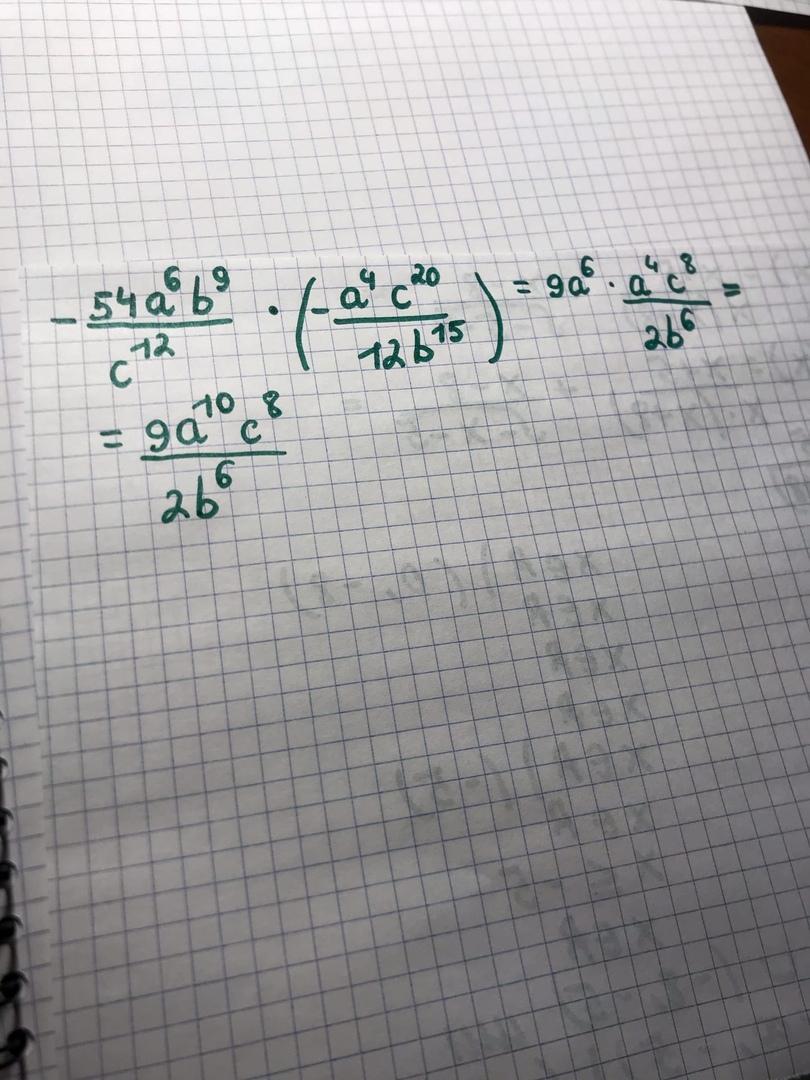 - 54a⁶b⁹/c¹² · (- a⁴c²⁰/12b¹⁵) = 9a⁶ · a⁴c⁸/2b⁶ =
= 9a¹⁰c⁸/2b⁶